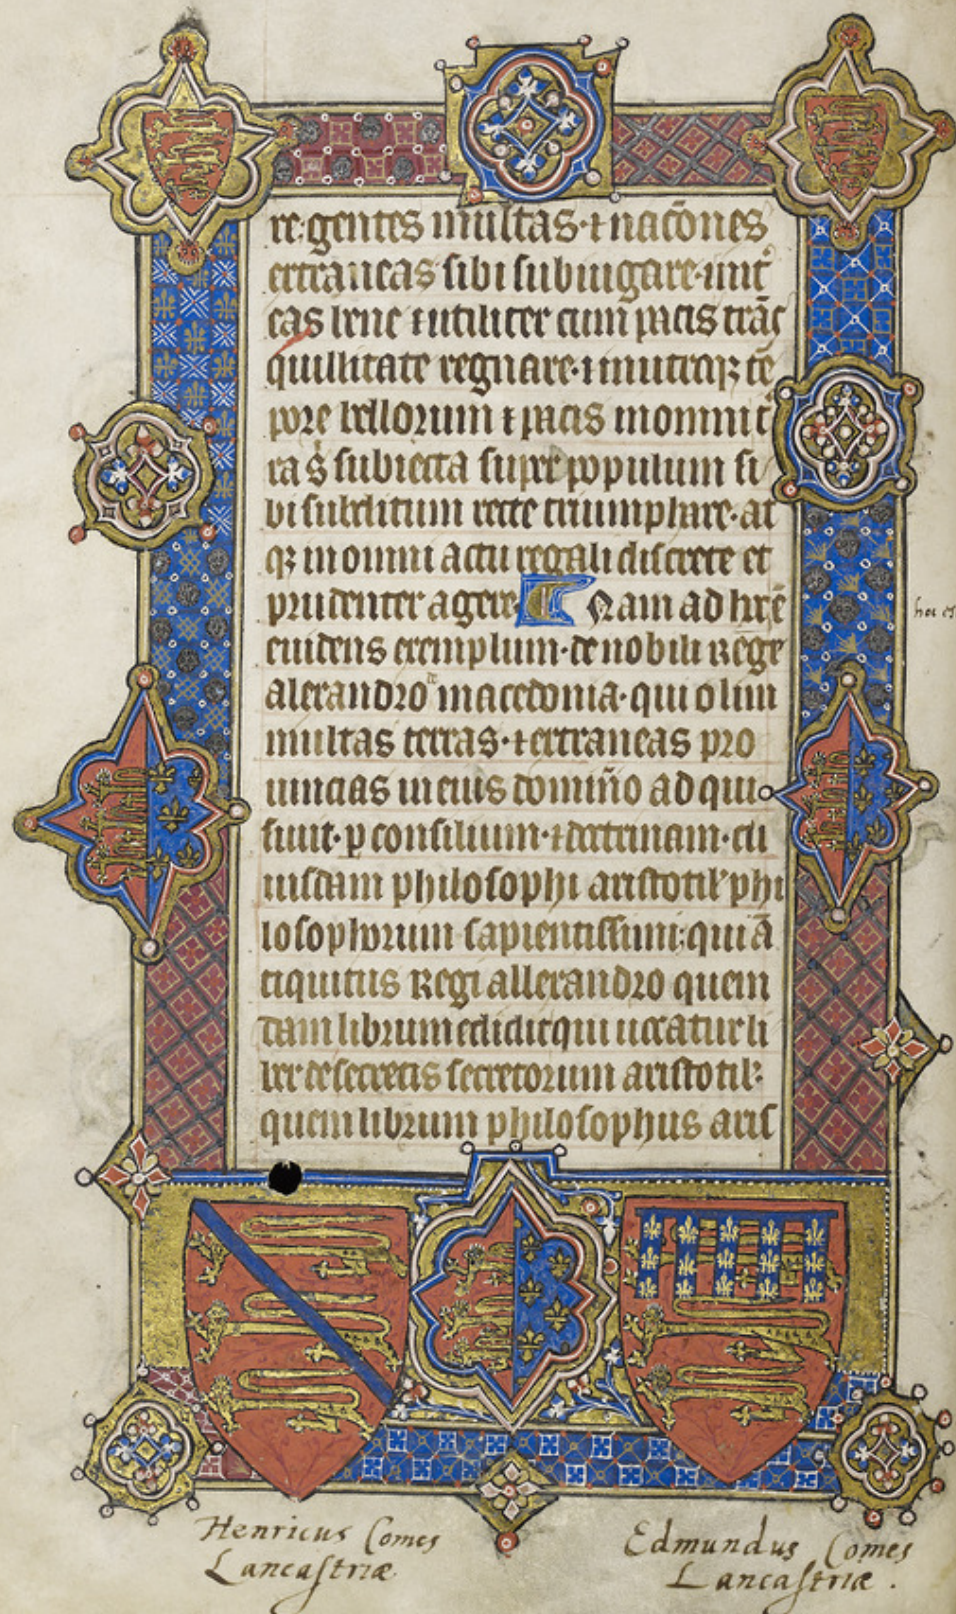 re·gentes multas·⁊ nac̃ones
extraneas sibi subiugare·nūc
eas bene ⁊ utiliter cum pacis trāq
quillitate regnare·⁊ in utroqꝫ tē
pore bellorum ⁊ pacis in omni t̾
ra s̾ subiecta super populum si
bi subditum recte triumphare·at
qꝫ in omni actu regali discrete et
prudenter agere· Nam ad hr̄e
euidens exemplum·de nobili Rege
alexandro de macedonia·qui olim
multas terras·⁊ extraneas pro
uincias in eius domīio adqui
siuit·ꝑ consilium·⁊ doctrinam·cu
iusdam philosophi aristotil̓ phi
losophorum sapientissimi;qui ā
tiquitus Regi allexandro quem
dam librum edidit qui uocatur li
ber de secretis secretorum aristotil̓·
quem librum philosophus aris
hoc
Henricus Comes
Lancastriæ
Edmundus Comes
Lancastriæ.